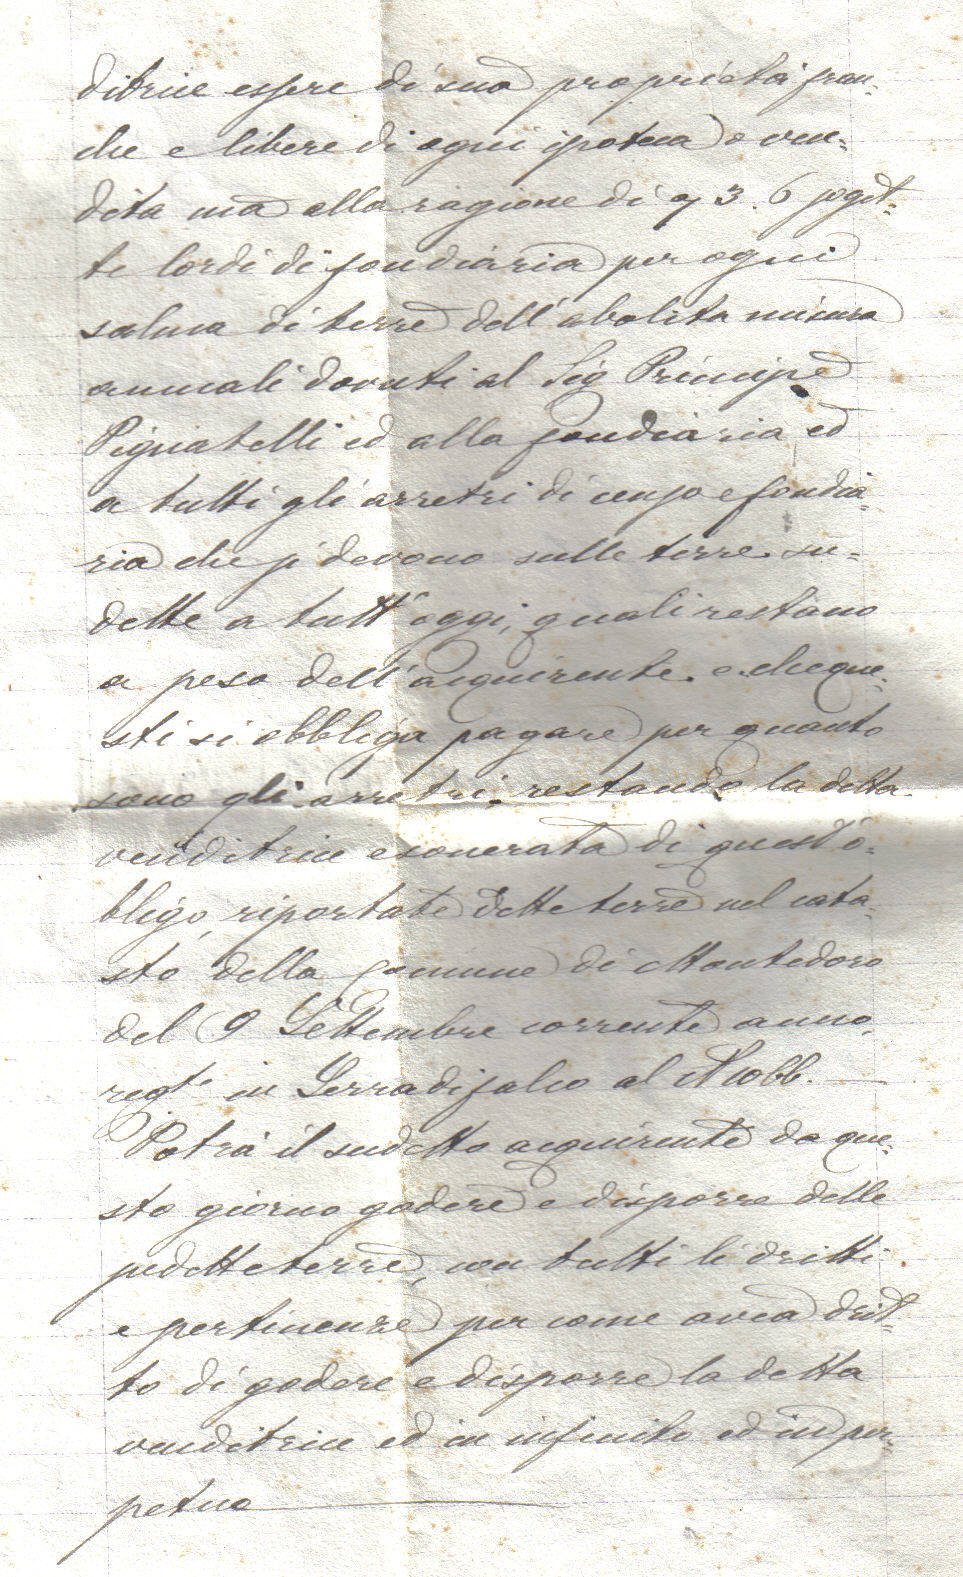 ditrice essere di sua proprietà fran-
che e libere di ogni ipoteca o ven-
dita ma alla ragione di 3. 6 sogget-
te lordi di fondiaria per ogni
salma di terre dell'abolita misura
annuali dovuti al Sig Principe
Pignatelli ed alla fondiaria ed
a tutti gli arretri di censo e fondia-
ria che si devono sulle terre su-
dette a tutt'oggi, quali restano
a peso dell'acquirente. e che que-
sti si obbliga pagare per quanto
sono gli arretri. restando la detta
venditrice esonerata di quest'o-
bligo, riportate dette terre nel cata-
sto della Comune di Montedoro
del 9 Settembre corrente anno.
regto in Serradifalco al N 1066.
Potrà il sudetto acquirente da que-
sto giorno godere e disporre delle
sudette terre, con tutti li dritti
e pertinenze per come avea drit-
to di godere e disporre la detta
venditrice ed in infinito ed in per-
petuo